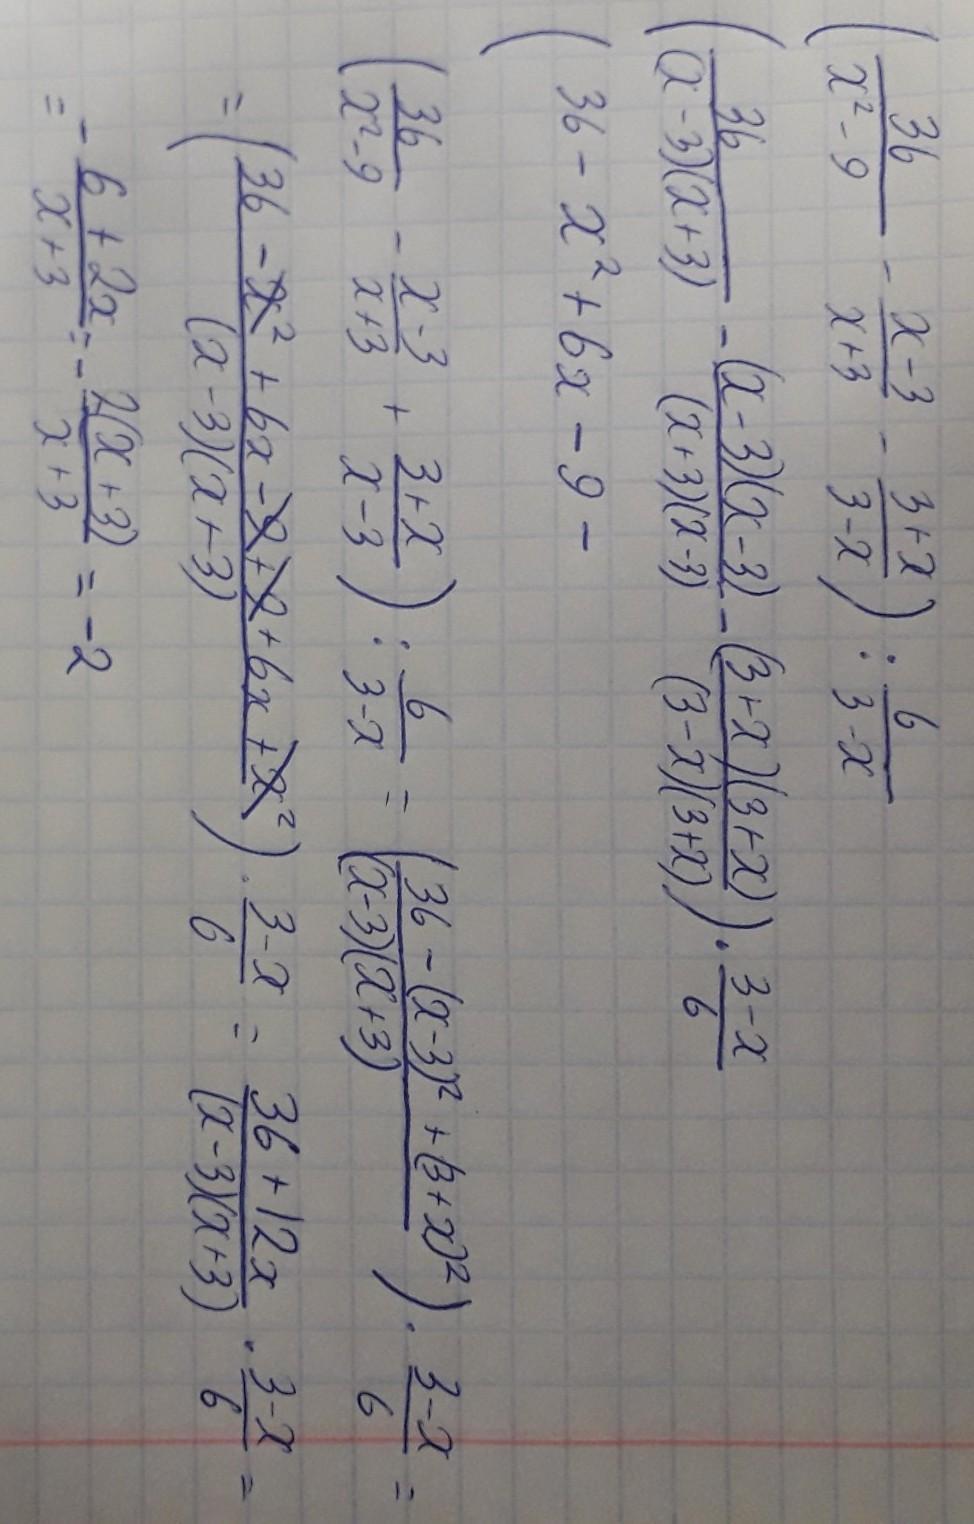 (36/(x²-9) - (x-3)/(x+3) - (3+x)/(3-x)) : 6/(3-x)
(36/((x-3)(x+3)) - (x-3)(x-3)/((x+3)(x-3)) - (3+x)(3+x)/((3-x)(3+x))) · (3-x)/6
(36 - x² + 6x - 9 -
(36/(x²-9) - (x-3)/(x+3) + (3+x)/(x-3)) : 6/(3-x) = ((36-(x-3)²+(3+x)²)/((x-3)(x+3))) · (3-x)/6 =
= ((36-x²+6x-9+9+6x+x²)/((x-3)(x+3))) · (3-x)/6 = (36+12x)/((x-3)(x+3)) · (3-x)/6 =
= - (6+2x)/(x+3) = - 2(x+3)/(x+3) = -2